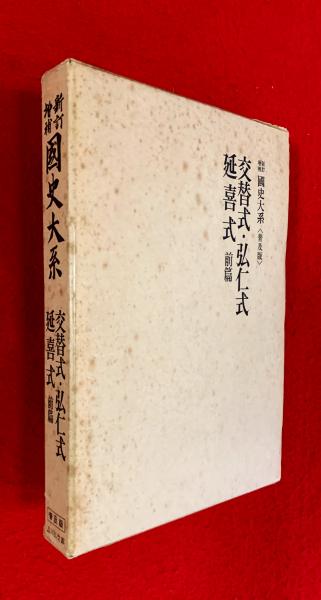 新訂
増補
國史大系
交替式・弘仁式
延喜式 前篇
普及版
新訂
増補 國史大系〈普及版〉
交替式・弘仁式
延喜式 前篇